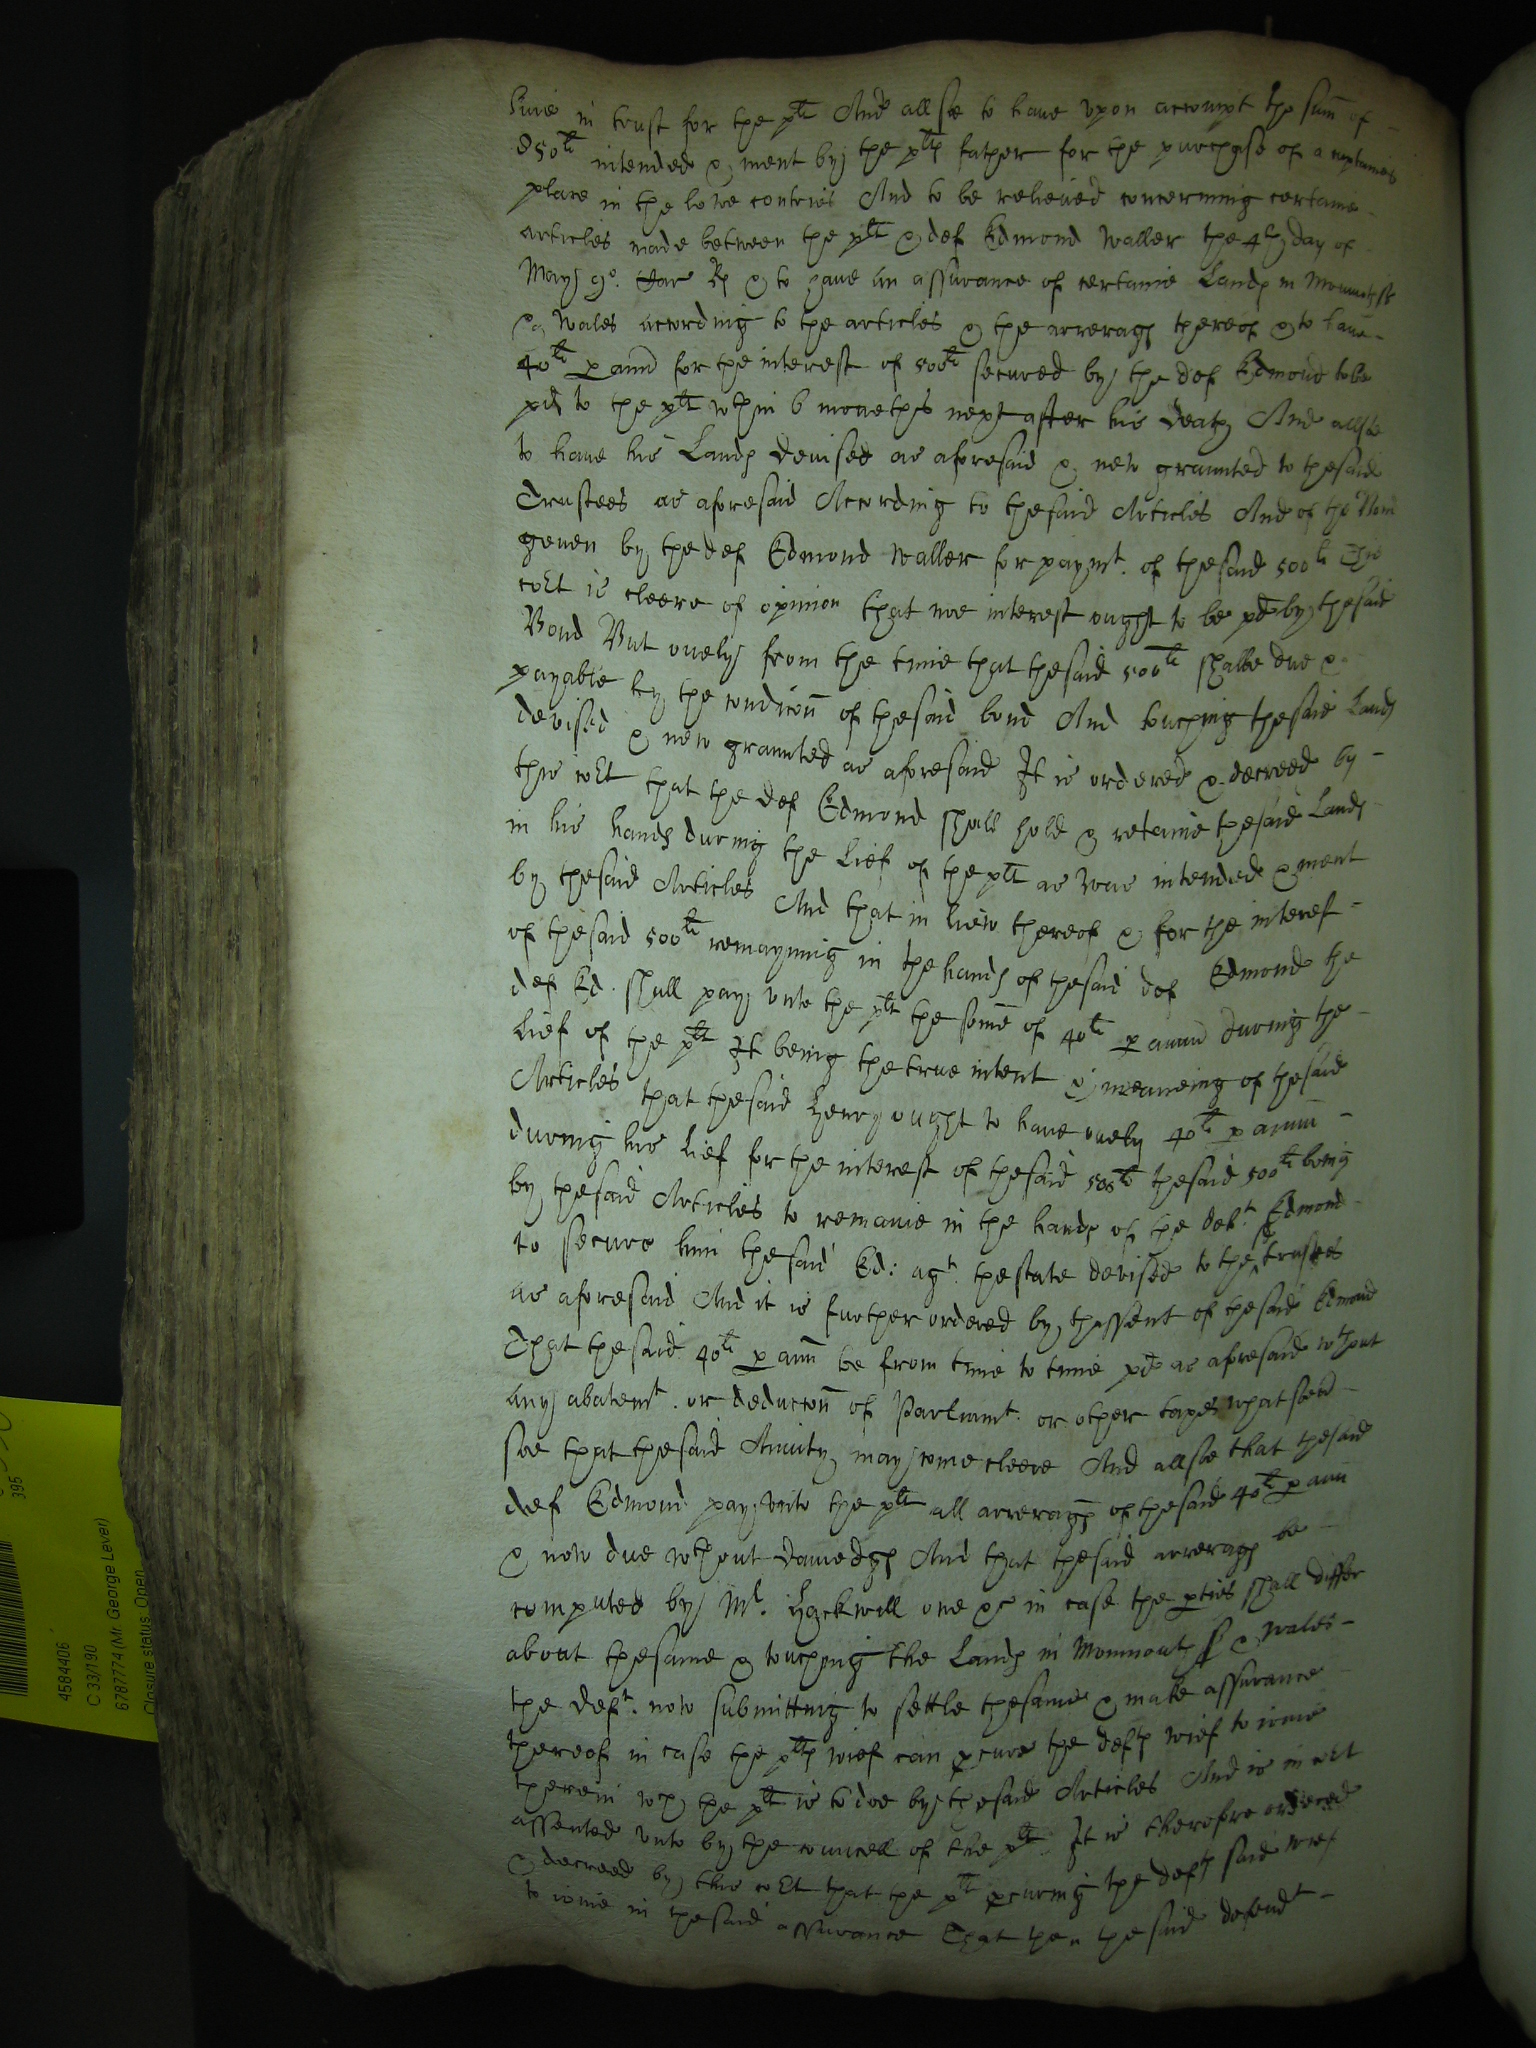 in trust for the plt And allsoe to have upon accompt the sum̄ of
850li intended & ment by the plts father for the purchase of a captaines
place in the lowe contries And to be releived concerning certaine
articles made betweene the plt & def Edmond Waller the 4th day of
May 9o. Car R & to have an assurance of certaine Lands in Monmouthsh
& Wales according to the articles & the arrerags thereof & to have
40li p ann̄ for the interest of 500li secured by the def Edmond to be
pd to the plt wthin 6 monethes next after his death And allsoe
to have his Lands devised as aforesaid & new graunted to thesaid
Trustees as aforesaid According to thesaid Articles And of the
geven by the def Edmond Waller for paymt. of thesaid 500li This
coEt is cleere of opinion that noe interest ought to be pd by thesaid
Bond But onely from the time that thesaid 500li shalbe due &
payable by the condicon̄ of thesaid bond And touching thesaid Lands
devised & new graunted as aforesaid It is ordered & decreed by
this coEt that the def Edmond shall hold & retaine thesaid Lands
in his hands during the Lief of the plt as was intended & ment
by thesaid Articles And that in liew thereof & for the interest
of thesaid 500li remayning in the hands of thesaid def Edmond the
def Ed. shall pay unto the plt the som̄e of 40li p annū during the
Lief of the plt It being the true intent & meaneing of thesaid
Articles that thesaid Henry ought to have onely 40li p annū
during his Lief for the interest of thesaid 500li thesaid 500li being
by thesaid Articles to remaine in the hands of the deft. Edmond
to secure him thesaid Ed: agt. thestate devised to the trustees
as aforesaid And it is further ordered by thassent of thesaid Edmond
That thesaid 40li p ann̄ be from time to time pd as aforesaid wthout
any abatemt. or deduccon̄ of Parliamt. or other taxes whatsoevr
soe that thesaid Anuity may come cleere And allsoe that thesaid
def Edmond pay unto the plt all arrerags of thesaid 40li p ann̄
& now due wthout damedgs And that thesaid arrerags be
computed by Mr. Hackwill one &c in case the pties shall differ
about thesame & touching the Lands in Monmouth & Wales
the deft. now submitting to settle thesame & make assurance
thereof in case the plts wief can pcure the defts wief to ioine
therein wch the plt is to doe by thesaid Articles And is in coEt
assented unto by the councell of the plt It is therefore ordered
& decreed by this coEt that the plt pcuring the defts said wief
to ioine in thesaid assurance That then the said defendt
4584406
C 33/190
6787774 (Mr. George Lever)
Closure status: Open
395